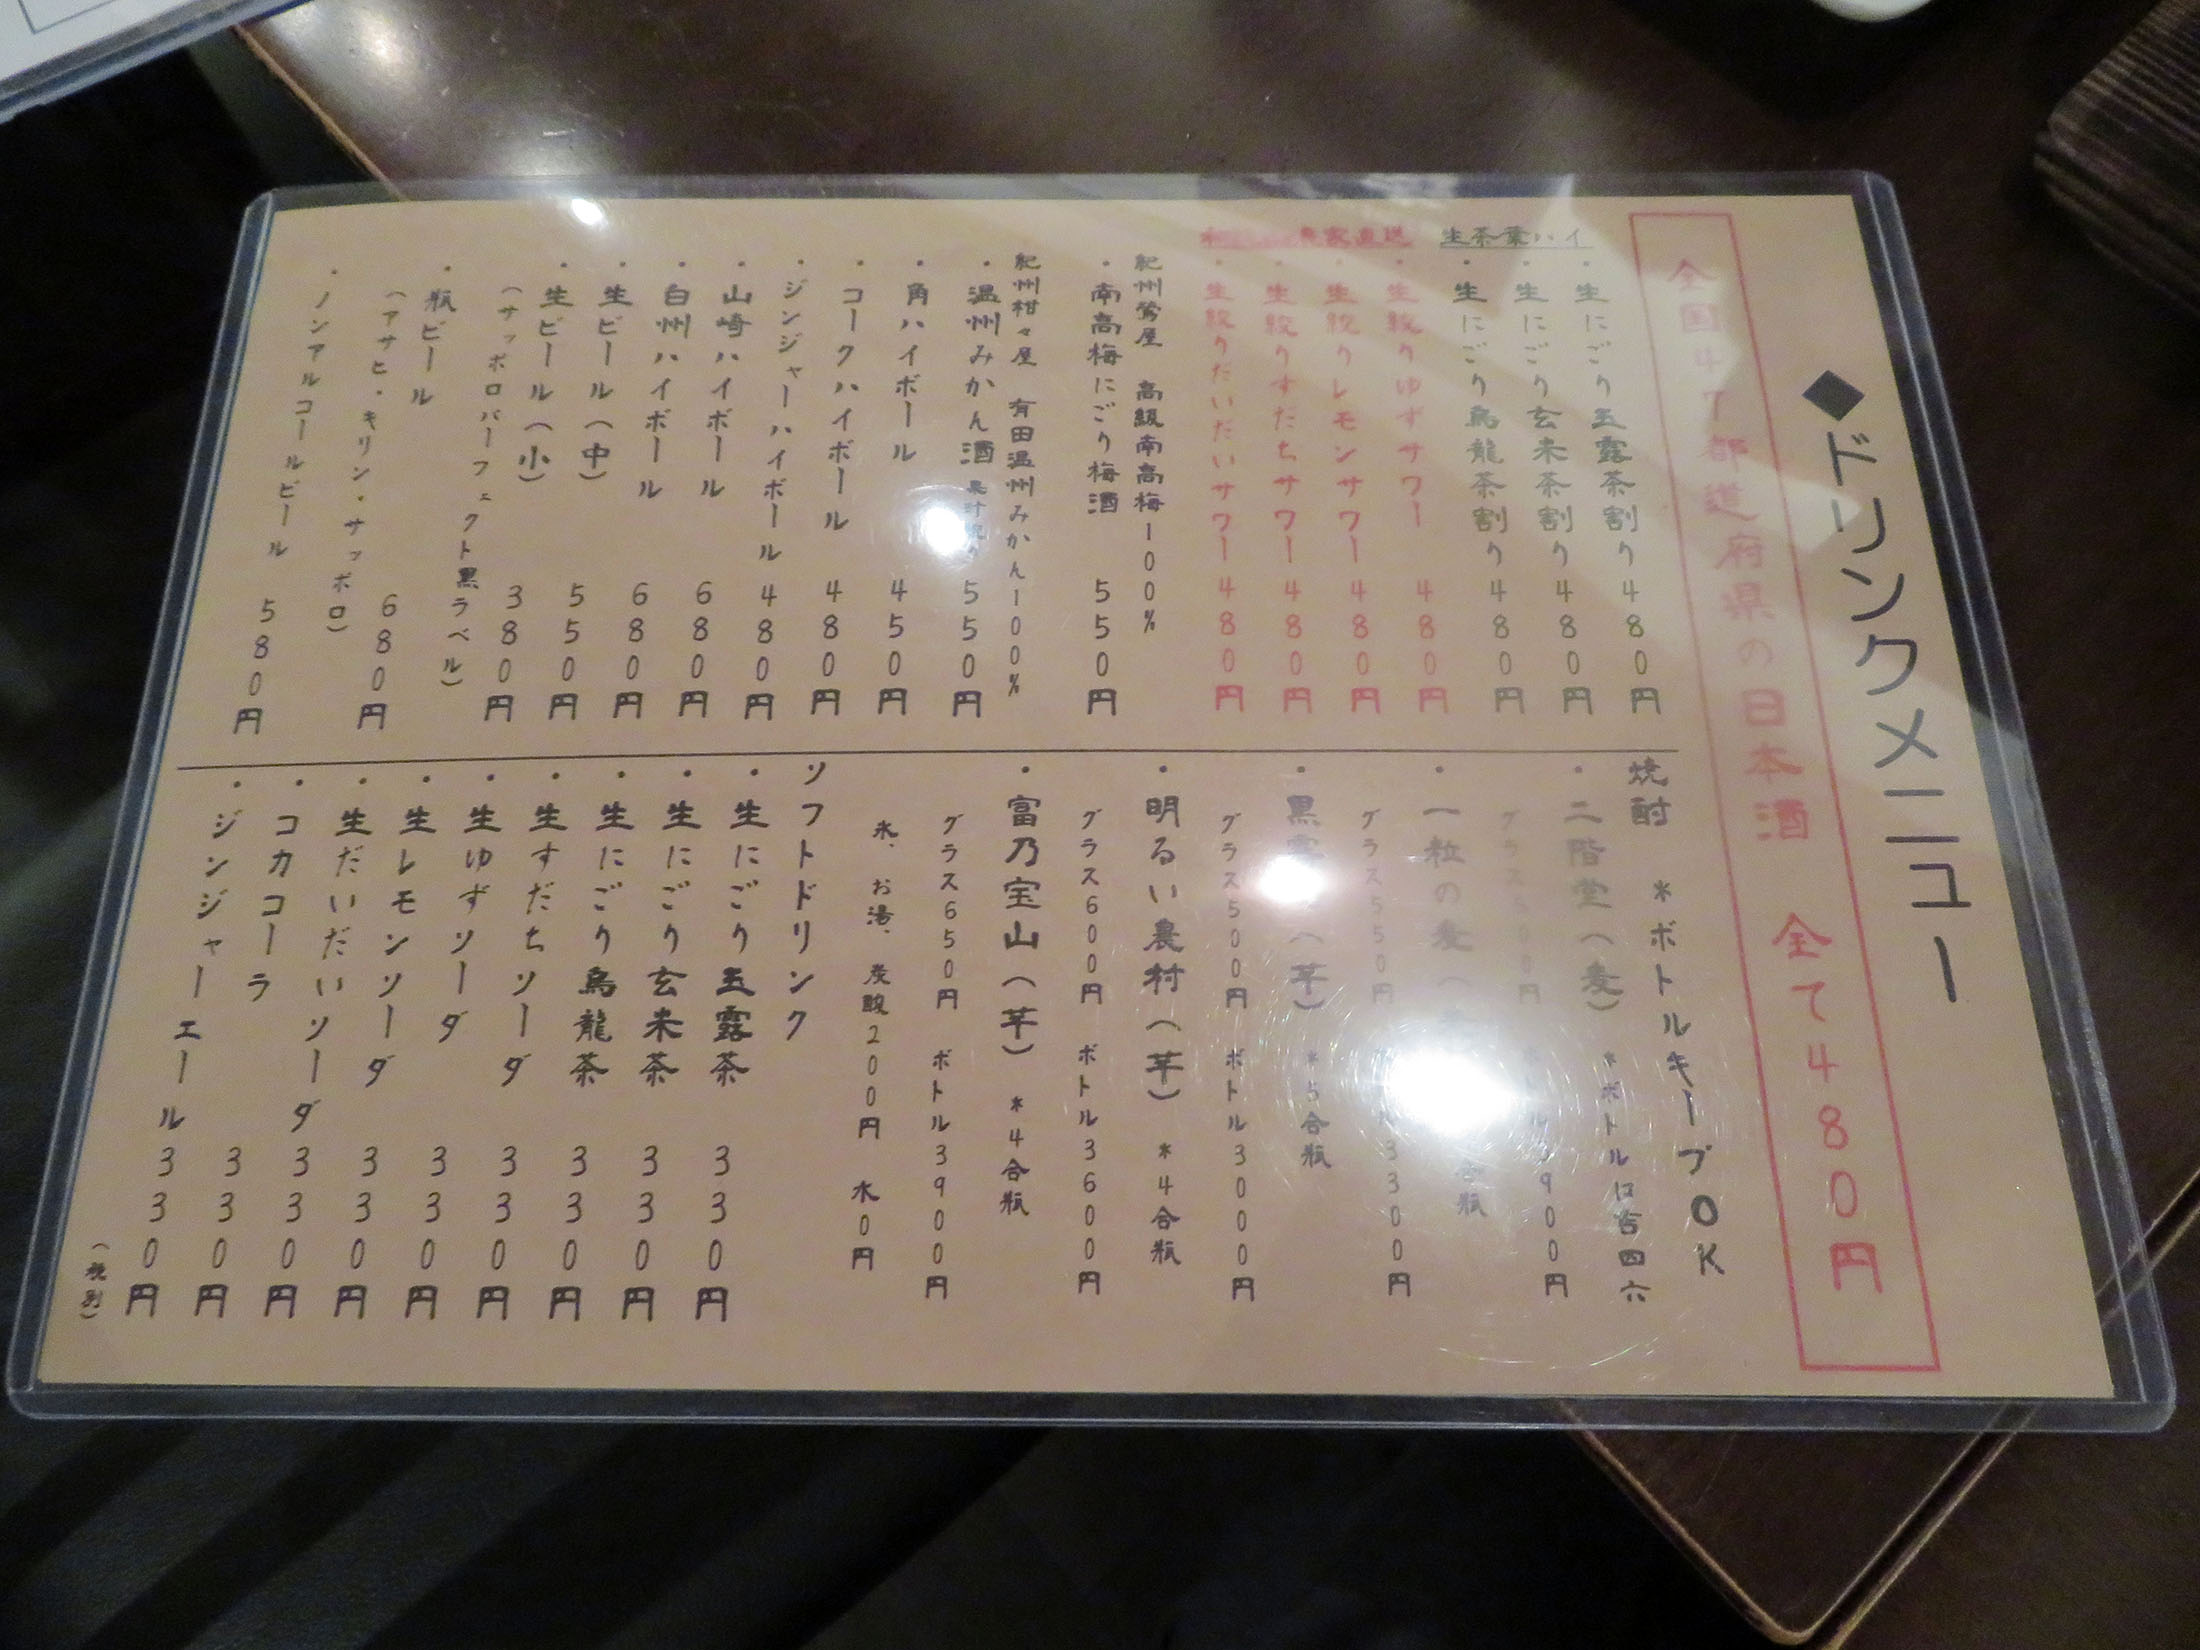 ◆ドリンクメニュー
全国47都道府県の日本酒 全て480円
生茶葉ハイ
・生にごり玉露茶割り480円
・生にごり玄米茶割り480円
・生にごり烏龍茶割り480円
農家直送
・生絞りゆずサワー 480円
・生絞りレモンサワー480円
・生絞りすだちサワー480円
・生絞りだいだいサワー480円
紀州鶯屋 高級南高梅100%
・南高梅にごり梅酒 550円
紀州柑々屋 有田温州みかん100%
・温州みかん酒 550円
・角ハイボール 450円
・コークハイボール 480円
・ジンジャーハイボール480円
・山崎ハイボール 680円
・白州ハイボール 680円
・生ビール(中) 550円
・生ビール(小) 380円
(サッポロパーフェクト黒ラベル)
・瓶ビール 680円
(アサヒ・キリン・サッポロ)
・ノンアルコールビール 580円
焼酎 *ボトルキープOK
*ボトルは皆四六
・二階堂(麦)
グラス500円 900円
・一粒の麦 合瓶
グラス550円 3300円
・黒 (芋) *5合瓶
グラス500円 ボトル3000円
・明るい農村(芋) *4合瓶
グラス600円 ボトル3600円
・富乃宝山(芋) *4合瓶
グラス650円 ボトル3900円
氷、お湯、炭酸200円 水0円
ソフトドリンク
・生にごり玉露茶 330円
・生にごり玄米茶 330円
・生にごり烏龍茶 330円
・生すだちソーダ 330円
・生ゆずソーダ 330円
・生レモンソーダ 330円
・生だいだいソーダ 330円
・コカコーラ 330円
・ジンジャーエール 330円
(税別)